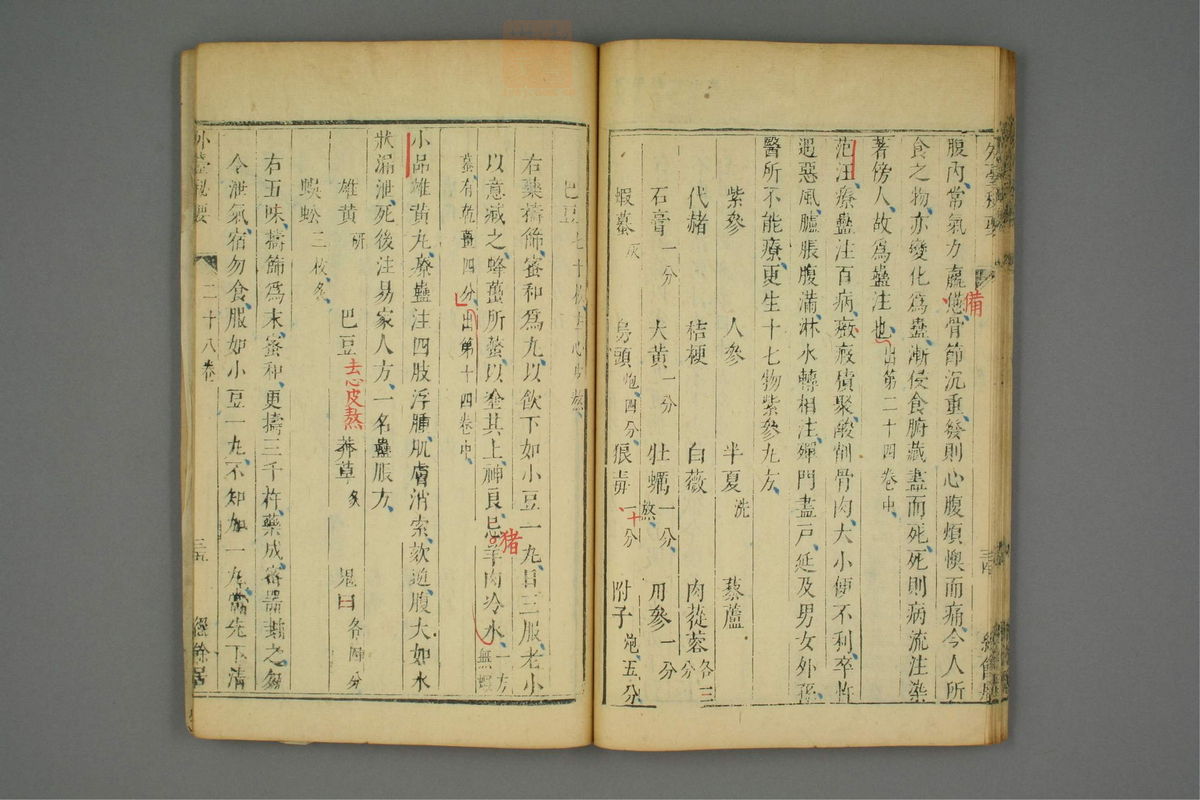 腹內常氣力羸憊骨節沉重發則心腹煩懊而痛令人所
備
食之物亦變化爲蠱漸侵食腑藏盡而死死則病流注染
著傍人故爲蠱注也出第二十四卷中
范汪療蠱注百病癥瘕積聚酸削骨肉大小便不利卒忤
遇惡風臚脹腹滿淋水轉相注殫門盡戶延及男女外孫
醫所不能療更生十七物紫參丸方
紫參 人參 半夏洗 藜蘆
代赭 桔梗 白薇 肉蓯蓉各三分
石膏一分 大黃一分 牡蠣一分熬 丹參一分
蝦蟇灰 烏頭炮四分 狼毒一分 附子炮五分
十
外臺秘要 三十四 經餘居
巴豆七十枚去心皮熬
右藥擣篩蜜和爲丸以飲下如小豆一丸日三服老小
以意減之蜂蠆所螫以塗其上神良忌羊肉冷水一方無蝦
猪
蟇有乾薑四分出第十四卷中
小品雄黃丸療蠱注四肢浮腫肌膚消索欬逆腹大如水
狀漏泄死後注易家人方一名蠱脹方
雄黃研 巴豆 莽草炙 鬼臼各四分
去心皮熬
蜈蚣二枚炙
右五味擣篩爲末蜜和更擣三千杵藥成密器封之勿
令泄氣宿勿食服如小豆一丸不知加一丸當先下清
外臺秘要 二十八卷 三十五 經餘居